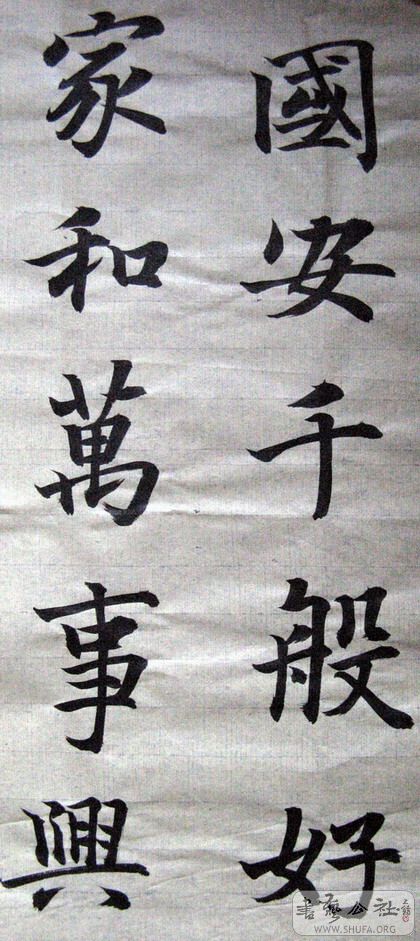 國安千般好
家和萬事興
書藝公社
WWW.SHUFA.ORG